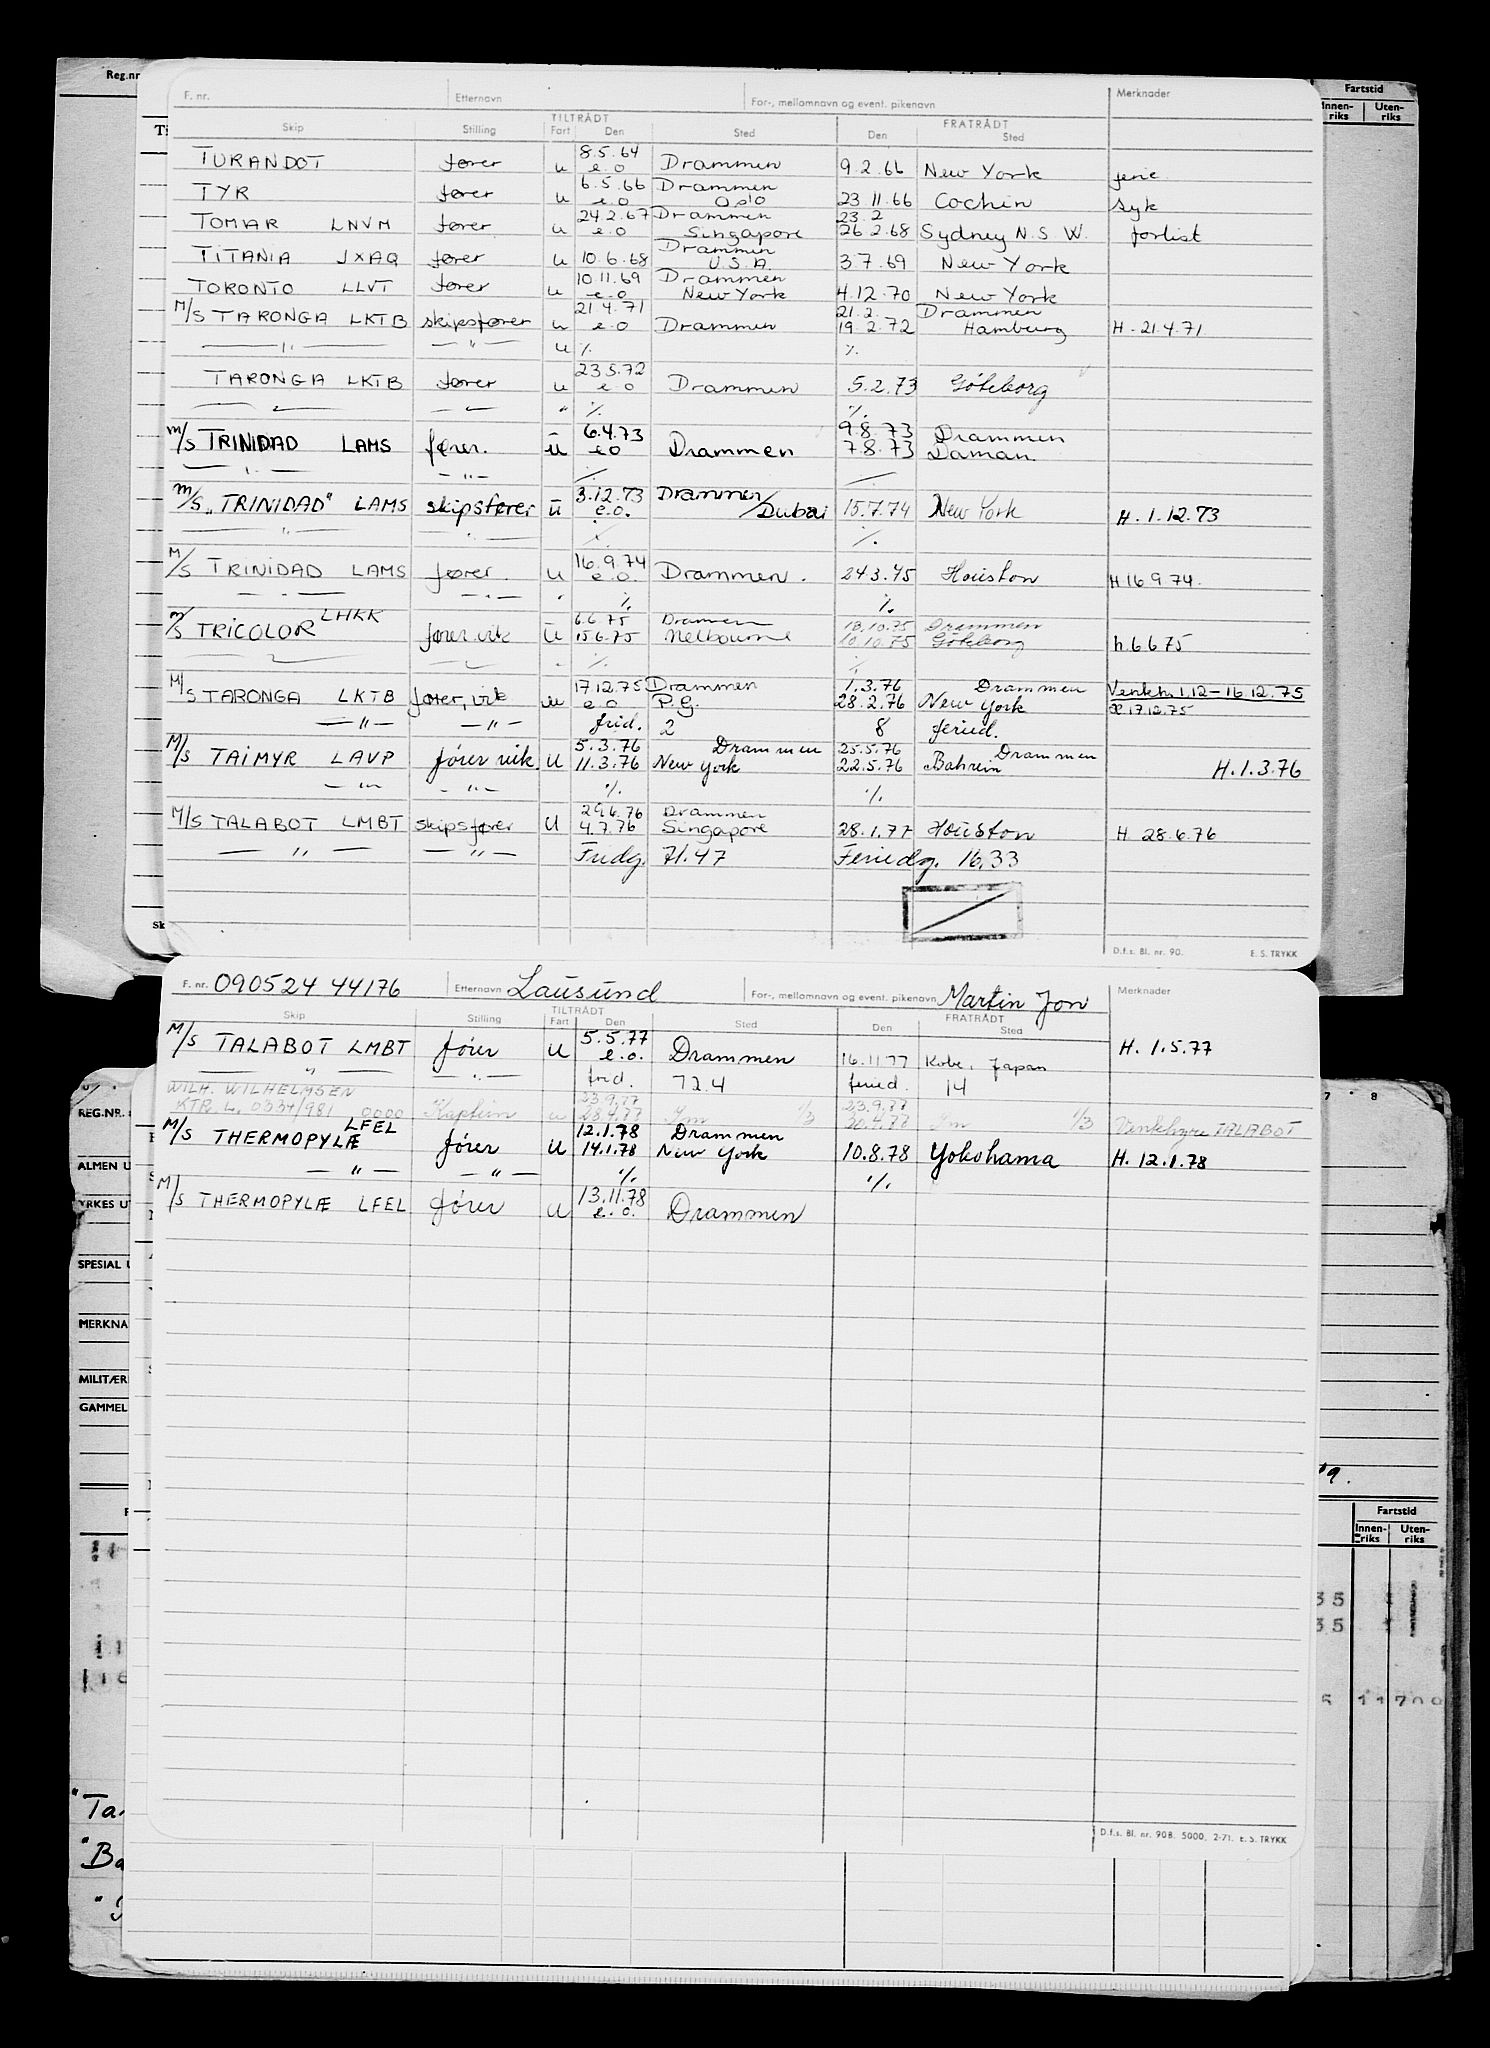 Reg.nr
Fartstid
Innen-riks Uten-riks
F. nr. Etternavn For-, mellomnavn og event. pikenavn Merknader
TILTRÅDT FRATRÅDT
Skip Stilling Fart Den Sted Den Sted
8.5.64
TURANDOT fører u e.o Drammen 9.2.66 New York ferie
6.5.66 Drammen
TYR fører u e.o Oslo 23 11.66 Cochin syk
24 2.67 Drammen 23.2
TOMAR LNVM fører u e.o Singapore 26 2.68 Sydney N.S.W. forlist
Drammen
TITANIA JXAQ fører u 10.6.68 U.S.A. 3.7.69 New York
10.11.69 Drammen
TORONTO LLVT fører u e.o New York 4.12.70 New York
21.4.71 21.2. Drammen
M/S TARONGA LKTB skipsfører u e.o Drammen 19.2.72 Hamburg H. 21.4.71
— " — — " — u ./. ./.
23.5.72
TARONGA LKTB fører u e.o Drammen 5.2.73 Göteborg
" ./. ./.
6.4.73 9.8.73 Drammen
M/S TRINIDAD LAMS fører. u e.o Drammen 7.8.73 Daman.
— " — — " — ./.
3.12.73 Drammen/
M/S "TRINIDAD" LAMS skipsfører u e.o. Dubai 15.7.74 New York H. 1.12.73
" ./. ./.
16.9.74
M/S TRINIDAD LAMS fører. u e.o. Drammen. 24 3.75 Houston H 16 9 74.
— " — — " — " ./. ./.
LHKK 6.6.75 Drammen 18.10.75 Drammen
M/S TRICOLOR fører vik u 15.6.75 Melbourne 10.10.75 Göteborg h. 6 6 75
./. ./.
17.12.75 Drammen 1.3.76 Drammen Ventehr. 1.12 – 16.12.75
M/S TARONGA LKTB fører, vik u e.o P.G. 28.2.76 New York H 17.12.75
— " — — " — frid. 2 8 feried.
5.3.76 Drammen 25.5.76 Drammen
M/S TAIMYR LAVP fører vik. u 11.3.76 New York 22.5.76 Bahrein H. 1.3.76
— " — — " — ./. ./.
29.6.76 Drammen
M/S TALABOT LMBT skipsfører U 4.7.76 Singapore 28.1.77 Houston H 28.6.76
— " — — " — Fridg. 71.47 Feriedg. 16,33
Sk
D.f.s. Bl. nr. 90. E. S. TRYKK
F. nr. 090524 44176 Etternavn Lausund For-, mellomnavn og event. pikenavn Martin Jon Merknader
TILTRÅDT FRATRÅDT
Skip Stilling Fart Den Sted Den Sted
5.5.77
M/S TALABOT LMBT fører U e.o. Drammen 16.11 77 Kobe, Japan H. 1.5.77
— " — — " — frid. 72.4 feried. 14
WILH. WILHELMSEN 23.9.77 23.9.77
KTR. L. 0334/981 0000 Kaptein u 1/3 1/3 TALABOT
LFEL 12.1.78 Drammen
M/S THERMOPYLÆ fører U 14.1.78 New York 10.8.78 Yokohama H. 12.1.78
— " — — " — ./. ./.
13.11.78
M/S THERMOPYLÆ LFEL fører U e.o. Drammen
REG.NR.
ALMEN U
YRKES UT
SPESIAL U
MERKNA
MILITÆR
GAMMEL
7 8
Fartstid
Innen-riks Uten-riks
35
35
11700
"Ta
"Ba
D.f.s. Bl. nr. 90B. 5000, 2-71. E. S. TRYKK